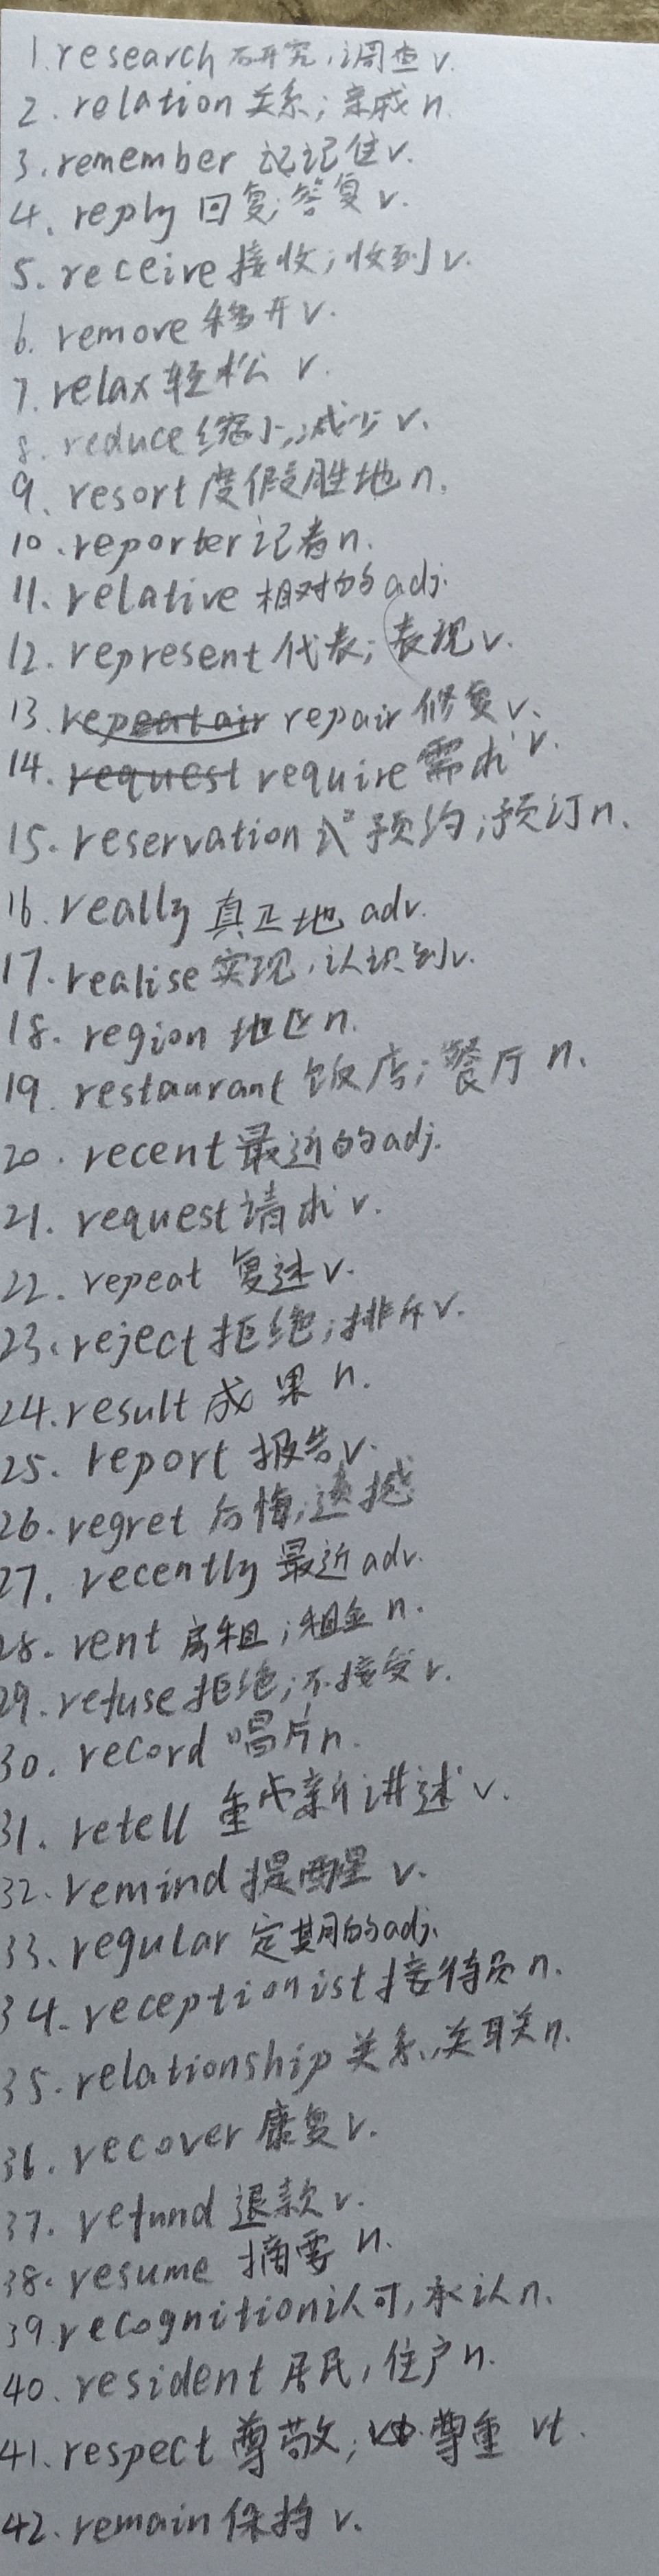 1. research 研究，调查 v.
2. relation 关系；亲戚 n.
3. remember 记记住 v.
4. reply 回复；答复 v.
5. receive 接收；收到 v.
6. remove 移开 v.
7. relax 轻松 v.
8. reduce 缩小，减少 v.
9. resort 度假胜地 n.
10. reporter 记者 n.
11. relative 相对的 adj.
12. represent 代表；表现 v.
13. repair 修复 v.
14. request require 需求 v.
15. reservation 预约；预订 n.
16. really 真正地 adv.
17. realise 实现，认识到 v.
18. region 地区 n.
19. restaurant 饭店；餐厅 n.
20. recent 最近的 adj.
21. request 请求 v.
22. repeat 复述 v.
23. reject 拒绝；排斥 v.
24. result 成果 n.
25. report 报告 v.
26. regret 后悔；遗憾
27. recently 最近 adv.
28. rent 房租；租金 n.
29. refuse 拒绝；不接受 v.
30. record 唱片 n.
31. retell 重新讲述 v.
32. remind 提醒 v.
33. regular 定期的 adj.
34. receptionist 接待员 n.
35. relationship 关系，关联 n.
36. recover 康复 v.
37. refund 退款 v.
38. resume 摘要 n.
39. recognition 认可，承认 n.
40. resident 居民，住户 n.
41. respect 尊敬；尊重 vt.
42. remain 保持 v.